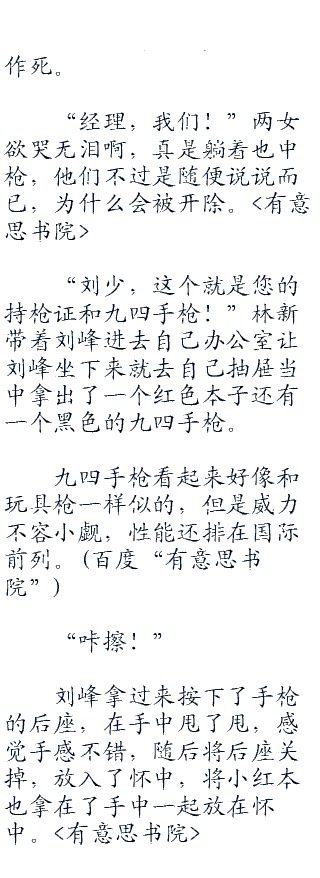 作死。
“经理，我们！”两女
欲哭无泪啊，真是躺着也中
枪，他们不过是随便说说而
已，为什么会被开除。<有意
思书院>
“刘少，这个就是您的
持枪证和九四手枪！”林新
带着刘峰进去自己办公室让
刘峰坐下来就去自己抽屉当
中拿出了一个红色本子还有
一个黑色的九四手枪。
九四手枪看起来好像和
玩具枪一样似的，但是威力
不容小觑，性能还排在国际
前列。(百度“有意思书
院”)
“咔擦！”
刘峰拿过来按下了手枪
的后座，在手中甩了甩，感
觉手感不错，随后将后座关
掉，放入了怀中，将小红本
也拿在了手中一起放在怀
中。<有意思书院>